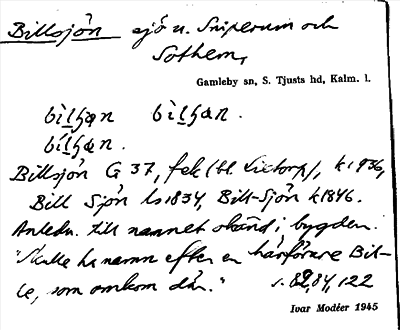 Billsjön sjö u. Sniperum och
Sothem,
Gamleby sn, S. Tjusts hd, Kalm. l.
bìlʃæn bìlʃan.
bílʃæn.
Billsjön G 37, fek (bl. ), k 1936,
Bill Sjön ls 1834, Bill-Sjön k 1846.
Anledn. till namnet okänd i bygden.
"Skulle ha namn efter en härförare Bil-
le, som omkom där." s. 84, 122
Ivar Modéer 1945